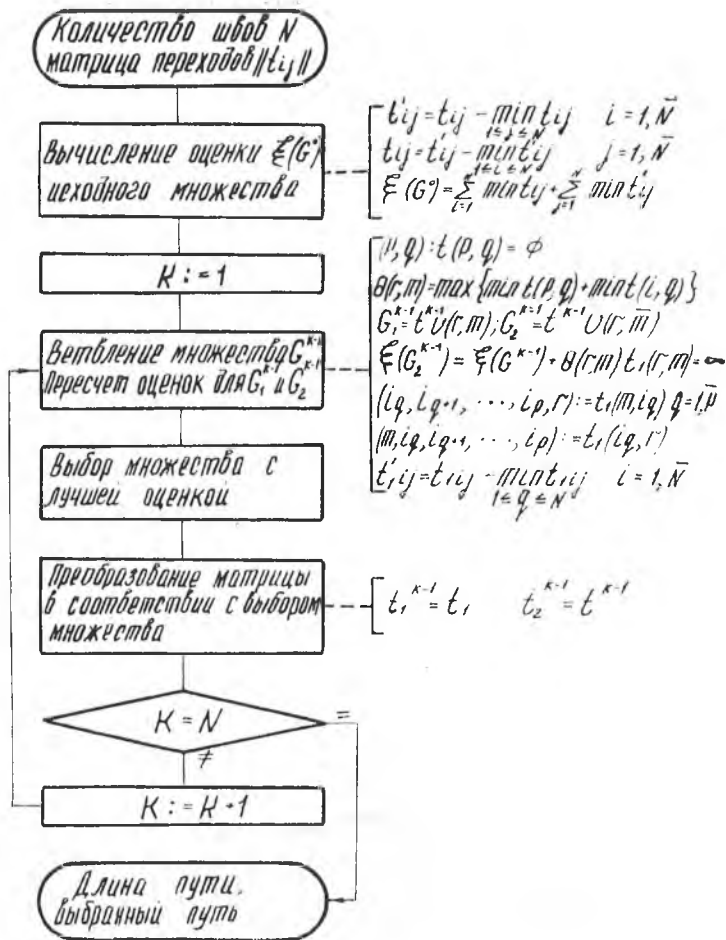 Количество швов N
матрица переходов ||tij||
Вычисление оценки ξ(G°)
исходного множества
t'ij = tij - min tij i = 1, N̄
1≤j≤N
tij = t'ij - min t'ij j = 1, N̄
1≤i≤N
ξ(G°) = Σ min tij + Σ min t'ij
K := 1
(p, q) : t(p, q) = ϕ
θ(r,m) = max {min t(p, q) + min t(i, q)}
Ветвление множества G^{k-1}
Пересчет оценок для G₁^{k-1} и G₂^{k-1}
G₁^{k-1} = t^{k-1} U (r, m); G₂^{k-1} = t^{k-1} U (r, m̄)
ξ(G₂^{k-1}) = ξ(G^{k-1}) + θ(r,m) t₁(r,m) = ∞
(iq, iq+1, ..., ip, r) := t₁(m, iq) q = 1,p̄
(m, iq, iq+1, ..., ip) := t₁(iq, r)
t'₁ij = t₁ij - min t₁ij i = 1, N̄
1≤q≤N
Выбор множества с
лучшей оценкой
Преобразование матрицы
в соответствии с выбором
множества
t₁^{k-1} = t₁ t₂^{k-1} = t^{k-1}
K = N
=
≠
K := K + 1
Длина пути,
выбранный путь